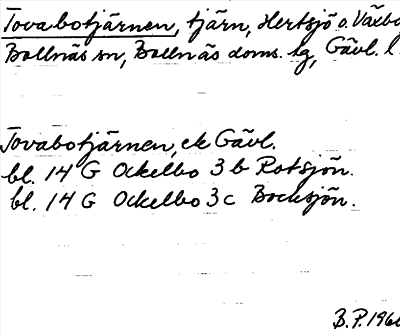 Tovabotjärnen, tjärn, Hertsjö o. Växbo
Bollnäs sn, Bollnäs doms. lg, Gävl. l.
Tovabotjärnen, ek Gävl.
bl. 14 G Ockelbo 3 b Rotsjön.
bl. 14 G Ockelbo 3 c Bocksjön.
B.P. 196